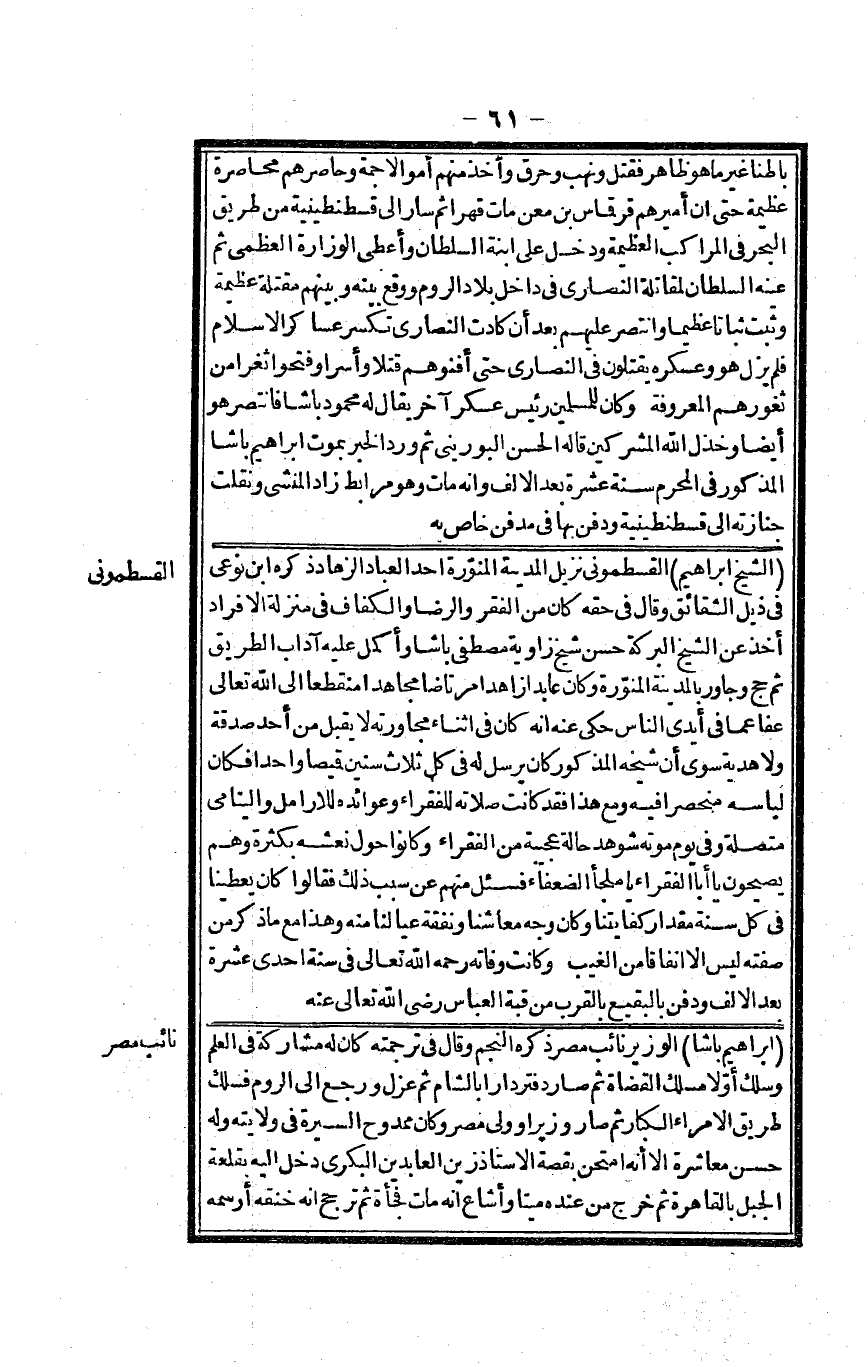 - ٦١ -
باطنا غير ما هو ظاهر فقتل ونهب وحرق وأخذ منهم أموالا جمة وحاصرهم محاصرة
عظيمة حتى ان أميرهم قرقاس بن معن مات قهرا ثم سار الى قسطنطينية من طريق
البحر فى المراكب العظيمة ودخل على ابنة السلطان وأعطى الوزارة العظمى ثم
عينه السلطان لمقاتلة النصارى فى داخل بلاد الروم ووقع بينه وبينهم مقتلة عظيمة
وثبت ثباتا عظيما وانتصر عليهم بعد أن كادت النصارى تكسر عساكر الاسلام
فلم يزل هو وعسكره يقتلون فى النصارى حتى أفنوهم قتلا وأسرا وفتحوا ثغرا من
ثغورهم المعروفة وكان للمسلمين رئيس عسكر آخر يقال له محمود باشا فانتصر هو
أيضا وخذل الله المشركين قاله الحسن البورينى ثم ورد الخبر بموت ابراهيم باشا
المذكور فى المحرم سنة عشرة بعد الالف وانه مات وهو مرابط زاد المنشى ونقلت
جنازته الى قسطنطينية ودفن بها فى مدفن خاص به
القسطمونى
(الشيخ ابراهيم) القسطمونى نزيل المدينة المنوّرة احد العباد الزهاد ذكره ابن نوعى
فى ذيل الشقائق وقال فى حقه كان من الفقر والرضا والكفاف فى منزلة الافراد
أخذ عن الشيخ البركة حسن شيخ زاوية مصطفى باشا وأكمل عليه آداب الطريق
ثم حج وجاور بالمدينة المنوّرة وكان عابدا زاهدا مرتاضا مجاهدا منقطعا الى الله تعالى
عفا عما فى أيدى الناس حكى عنه انه كان فى اثناء مجاورته لا يقبل من أحد صدقة
ولا هدية سوى أن شيخه المذكور كان يرسل له فى كل ثلاث سنين قيصا واحدا فكان
لباسه منحصرا فيه ومع هذا فقد كانت صلاته للفقراء وعوائده للارامل واليتامى
متصلة وفى يوم موته شوهد حالة عجيبة من الفقراء وكانوا حول نعشه بكثرة وهم
يصيحون يا أبا الفقراء يا ملجأ الضعفاء فسئل منهم عن سبب ذلك فقالوا كان يعطينا
فى كل سنة مقدار كفايتنا وكان وجه معاشنا ونفقة عيالنا منه وهذا مع ماذكر من
صفته ليس الا انفاقا من الغيب وكانت وفاته رحمه الله تعالى فى سنة احدى عشرة
بعد الالف ودفن بالبقيع بالقرب من قبة العباس رضى الله تعالى عنه
نائب مصر
(ابراهيم باشا) الوزير نائب مصر ذكره النجم وقال فى ترجمته كان له مشاركة فى العلم
وسلك أوّلا مسلك القضاة ثم صار دفتردارا بالشام ثم عزل ورجع الى الروم فسلك
طريق الامراء الكبار ثم صار وزيرا وولى مصر وكان ممدوح السيرة فى ولايته وله
حسن معاشرة الا أنه امتحن بقصة الاستاذ زين العابدين البكرى دخل اليه بقلعة
الجبل بالقاهرة ثم خرج من عنده ميتا وأشاع أنه مات فجأة ثم ترجح انه خنقه أو سمه